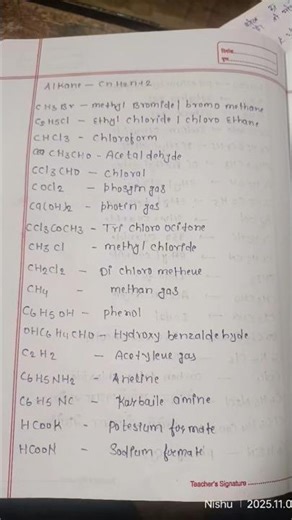 Date..........
Page..........
Alkane - CnH2n+2
CH3Br - methyl Bromide | bromo methane
C2H5Cl - Ethyl chloride | chloro Ethane
CHCl3 - chloroform
CH3CHO - Acetaldehyde
CCl3CHO - chloral
COCl2 - phosgin gas
Ca(OH)2 - photin gas
CCl3COCH3 - Tri chloro ocitone
CH3Cl - methyl chloride
CH2Cl2 - Di chloro metheue
CH4 - methan gas
C6H5OH - phenol
OHC6H4CHO - Hydroxy benzaldehyde
C2H2 - Acetyleue gas
C6H5NH2 - Aneline
C6H5NC - Karbaile amine
HCOOK - Potesium formate
HCOON - Sodium formate
Teacher's Signature
Nishu | 2025.11.0